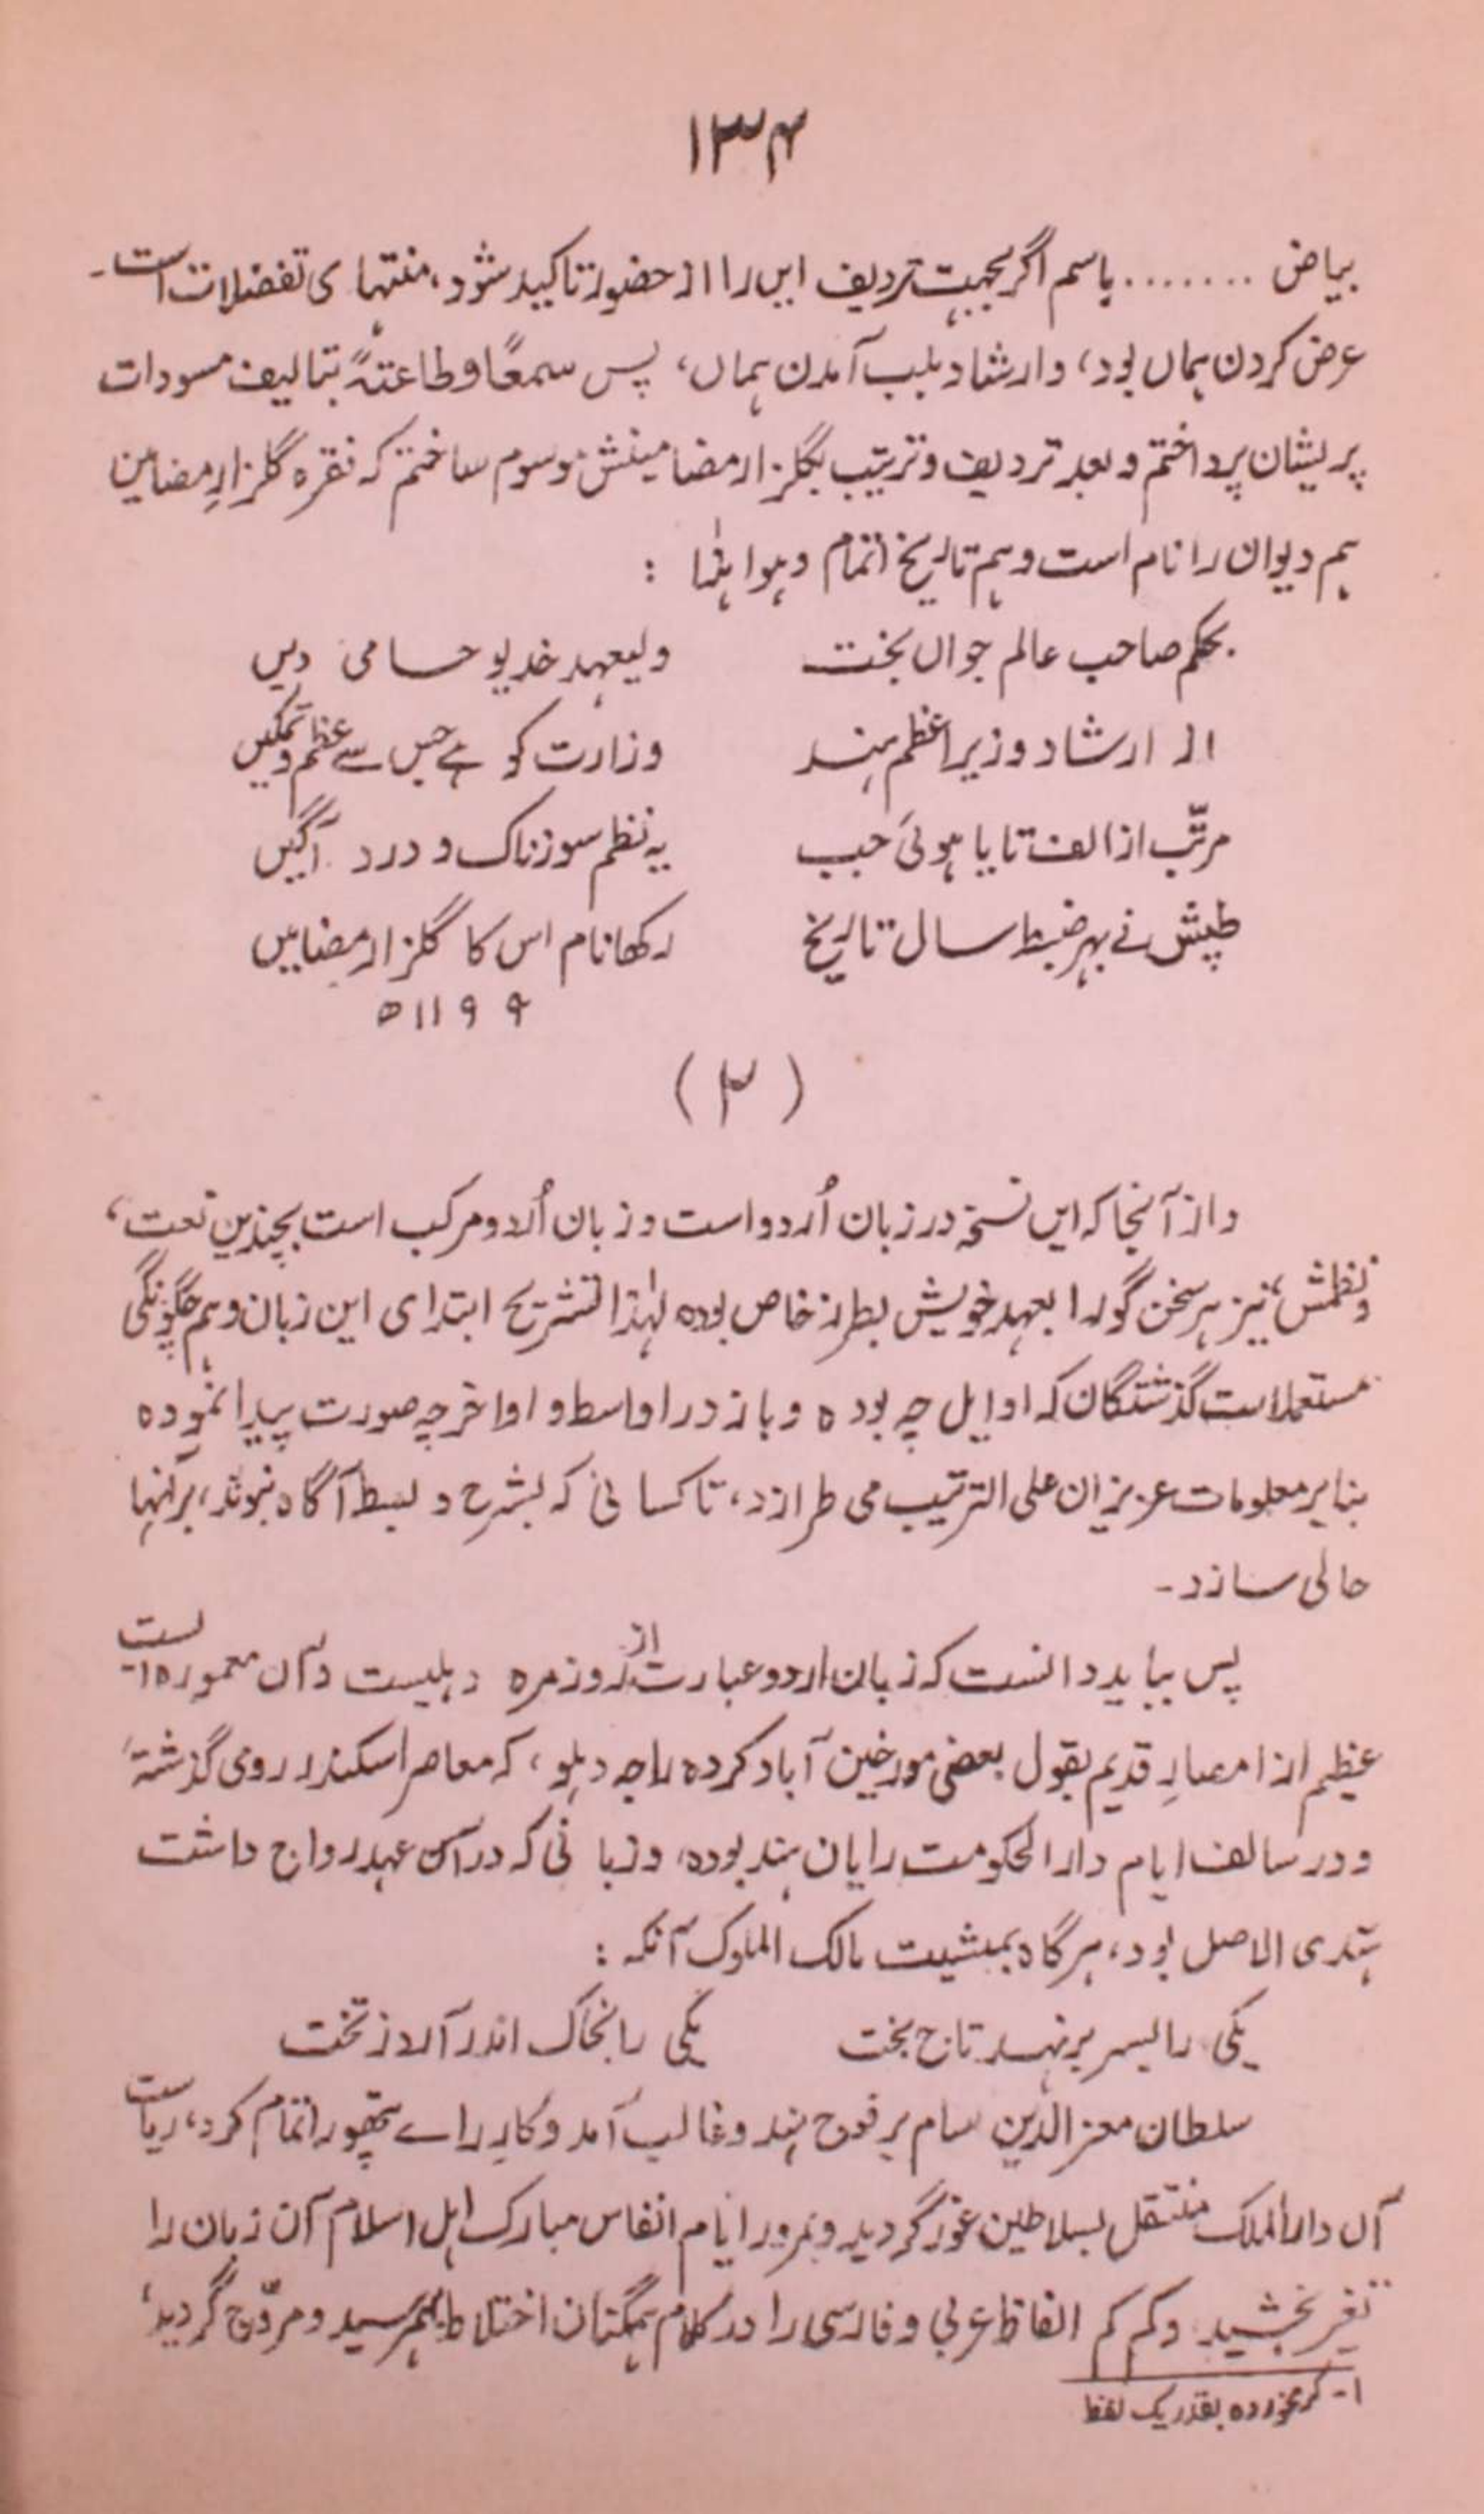 ۱۳۴
بیاض ........ باسم اگر بجہت تردیف ایں را از حضور تاکید شود، منتہای تفضلات است۔
عرض کردن ہماں بود، و ارشاد بلب آمدن ہماں، پس سمعًا و طاعتہً بتالیف مسودات
پریشان پرداختم و بعد تردیف و ترتیب بگلزار مضامینش موسوم ساختم کہ فقرہ گلزارِ مضامین
ہم دیوان را نام است و ہم تاریخ اتمام و ہوا ہٰذا :
بحکم صاحب عالم جواں بخت ولیعہد خدیو حامی دیں
از ارشاد وزیر اعظم ہند وزارت کو ہے جس سے عظم و تمکیں
مرتّب از الف تا یا ہوئی جب یہ نظم سوزناک و درد آگیں
طپش نے بہر ضبط سال تاریخ رکھا نام اس کا گلزار مضامیں
۱۱۹۹ھ
(۲)
و از آنجا کہ ایں نسخہ در زبان اُردو است و زبان اُردو مرکب است بچندین لغت،
و نظمش نیز ہر سخن گو را بعہد خویش بطرز خاص بودہ لہٰذا تشریح ابتدای این زبان و ہم چگونگی
مستعملات گذشتگان کہ اوایل چہ بودہ و باز در اواسط و اواخر چہ صورت پیدا نمودہ
بنا بر معلومات عزیزان علی الترتیب می طرازد، تا کسانی کہ بشرح و بسط آگاہ نبوند، برآنہا
حالی سازد۔
پس بباید دانست کہ زبان اردو عبارت از روزمرہ دہلیست و آں معمورہ ایست
عظیم از امصارِ قدیم بقول بعضی مورخین آباد کردہ راجہ دہلو، کہ معاصر اسکندر رومی گذشتہ
و در سالف ایام دار الحکومت رایان ہند بودہ، و زبانی کہ در آں عہد رواج داشت
ہندی الاصل بود، ہرگاہ بمشیت مالک الملوک آنکہ :
یکی را بسر بر نہد تاج بخت یکی را بخاک اندر آرد ز تخت
سلطان معز الدین سام بر فوج ہندو غالب آمد و کار راے پتھورا تمام کرد، ریاست
آں دار الملک منتقل بسلاطین غور گردید و بمرور ایام انفاس مبارک اہل اسلام آن زبان را
تغیر بخشید و کم کم الفاظ عربی و فارسی را در کلام ہمگنان اختلاط بہم رسید و مروّج گردید،
۱۔ کرمخوردہ بقدر یک لفظ